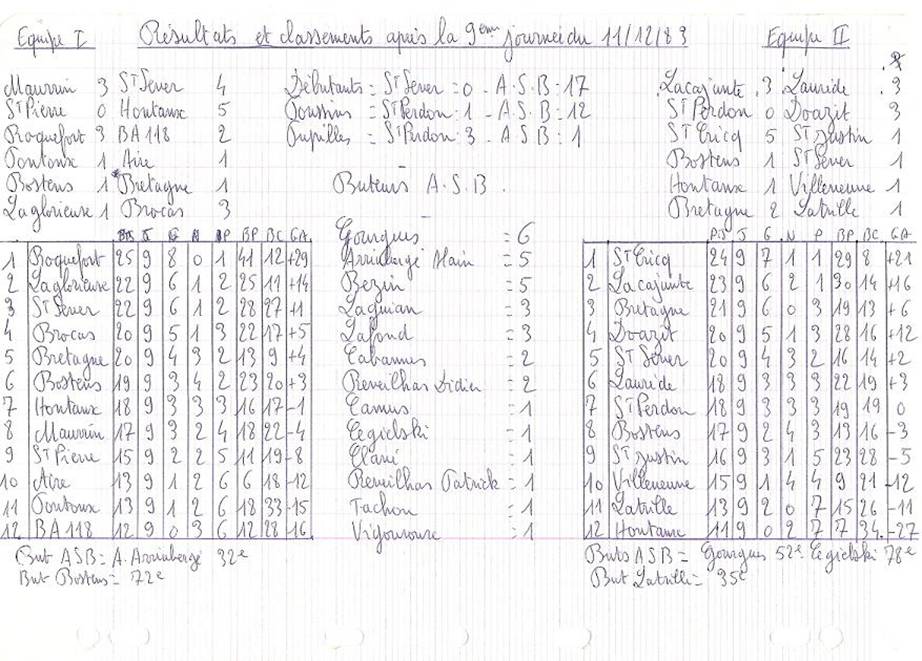 Equipe I Résultats et classements après la 9ème journée du 11/12/83 Equipe II
Maurrin 3 St Sever 4
St Pierre 0 Hontanx 5
Roquefort 3 BA118 2
Pontonx 1 Aire 1
Bostens 1 Bretagne 1
Laglorieuse 1 Brocas 3
Débutants = St Sever = 0 - A.S.B = 17
Poussins = St Perdon : 1 - A.S.B = 12
Pupilles = St Perdon : 3 - A.S.B : 1
Lacajunte 3 Lauride 3
St Perdon 0 Doazit 3
St Cricq 5 St Justin 1
Bostens 1 St Sever 1
Hontanx 1 Villeneuve 1
Bretagne 2 Latrille 1
Pts J G N P BP BC GA
1 Roquefort 25 9 8 0 1 41 12 +29
2 Laglorieuse 22 9 6 1 2 25 11 +14
3 St Sever 22 9 6 1 2 28 27 +1
4 Brocas 20 9 5 1 3 22 17 +5
5 Bretagne 20 9 4 3 2 13 9 +4
6 Bostens 19 9 3 4 2 23 20 +3
7 Hontanx 18 9 3 3 3 16 17 -1
8 Maurrin 17 9 3 2 4 18 22 -4
9 St Pierre 15 9 2 2 5 11 19 -8
10 Aire 13 9 1 2 6 6 18 -12
11 Pontonx 13 9 1 2 6 18 33 -15
12 BA118 12 9 0 3 6 12 28 -16
But ASB = A. Arrieberge 32e
But Bostens = 72e
Buteurs A.S.B.
Gourgues = 6
Alain = 5
Bezin = 5
Laguian = 3
Lafond = 3
Cabannes = 2
Reveilhas Didier = 2
Camus = 1
Cegielski = 1
Clavé = 1
Reveilhas Patrick = 1
Tachon = 1
Vigouroux = 1
Pts J G N P BP BC GA
1 St Cricq 24 9 7 1 1 29 8 +21
2 Lacajunte 23 9 6 2 1 30 14 +16
3 Bretagne 21 9 6 0 3 19 13 +6
4 Doazit 20 9 5 1 3 28 16 +12
5 St Sever 20 9 4 3 2 16 14 +2
6 Lauride 18 9 3 3 3 22 19 +3
7 St Perdon 18 9 3 3 3 19 19 0
8 Bostens 17 9 2 4 3 13 16 -3
9 St Justin 16 9 3 1 5 23 28 -5
10 Villeneuve 15 9 1 4 4 9 21 -12
11 Latrille 13 9 2 0 7 15 26 -11
12 Hontanx 11 9 0 2 7 7 34 -27
Buts ASB = Gourgues 52e Cegielski 78e
But Latrille = 35e